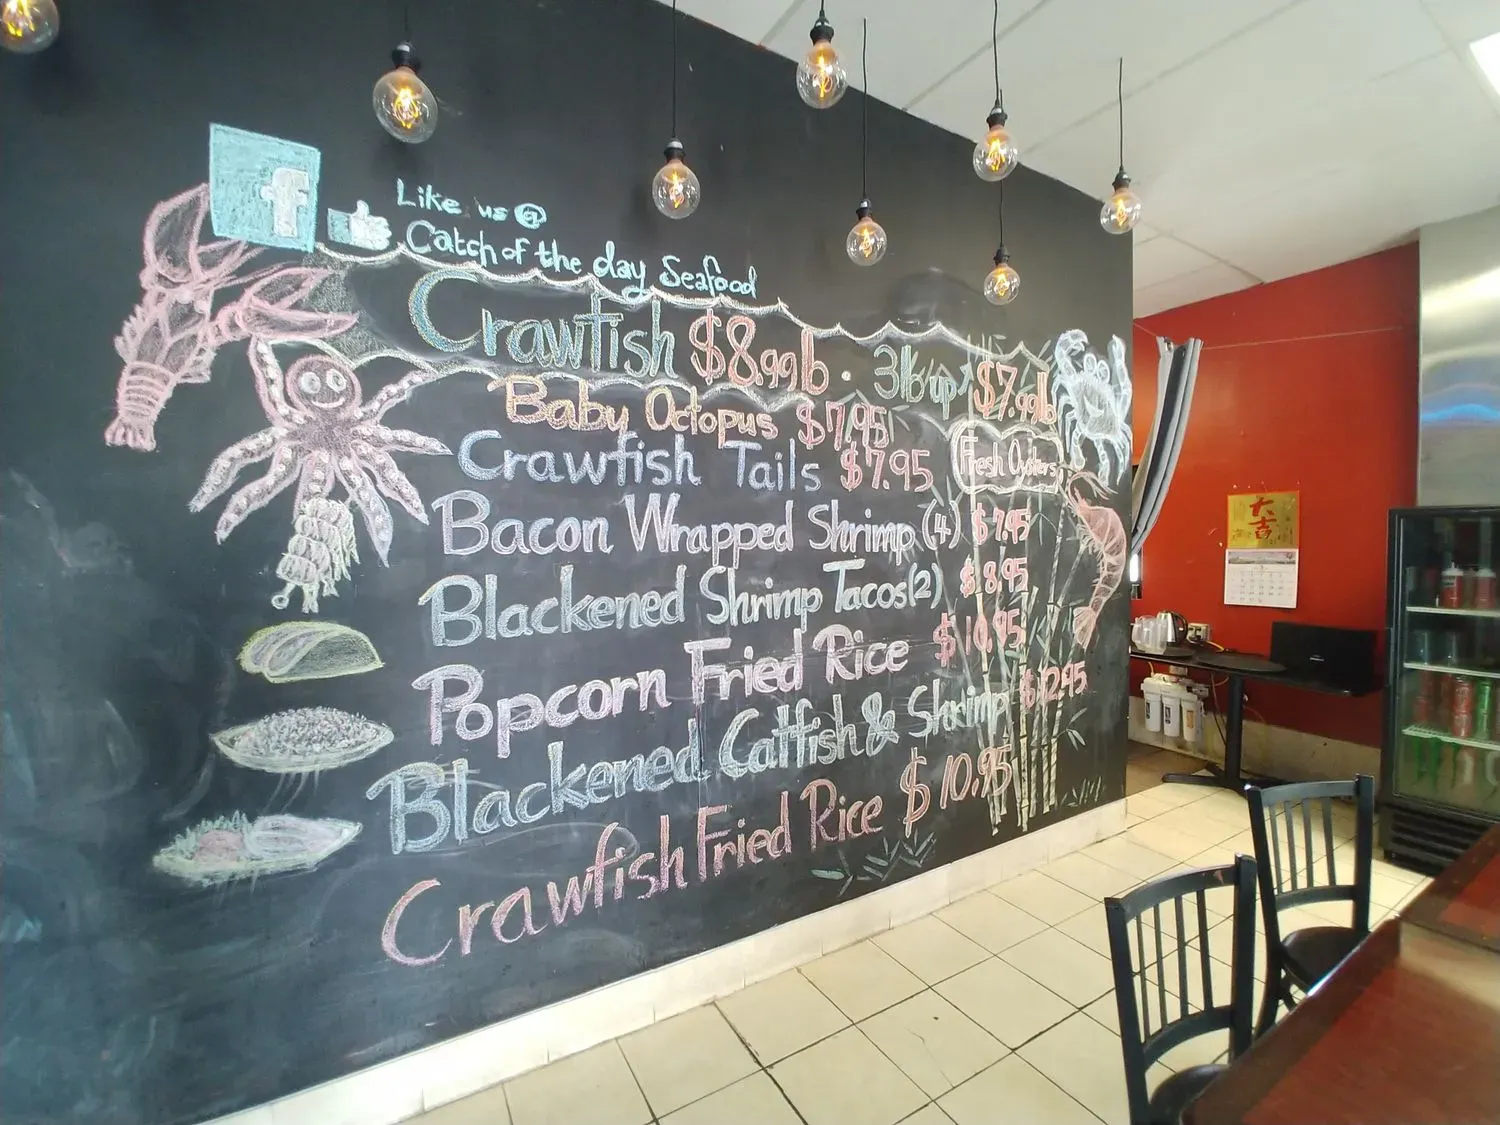 f
Like us @
Catch of the day Seafood
Crawfish $8.99lb 3lb up $7.99lb
Baby Octopus $7.95
Crawfish Tails $7.95
Fresh Oysters
Bacon Wrapped Shrimp (4) $7.95
Blackened Shrimp Tacos (2) $8.95
Popcorn Fried Rice $10.95
Blackened Catfish & Shrimp $12.95
Crawfish Fried Rice $10.95
大吉